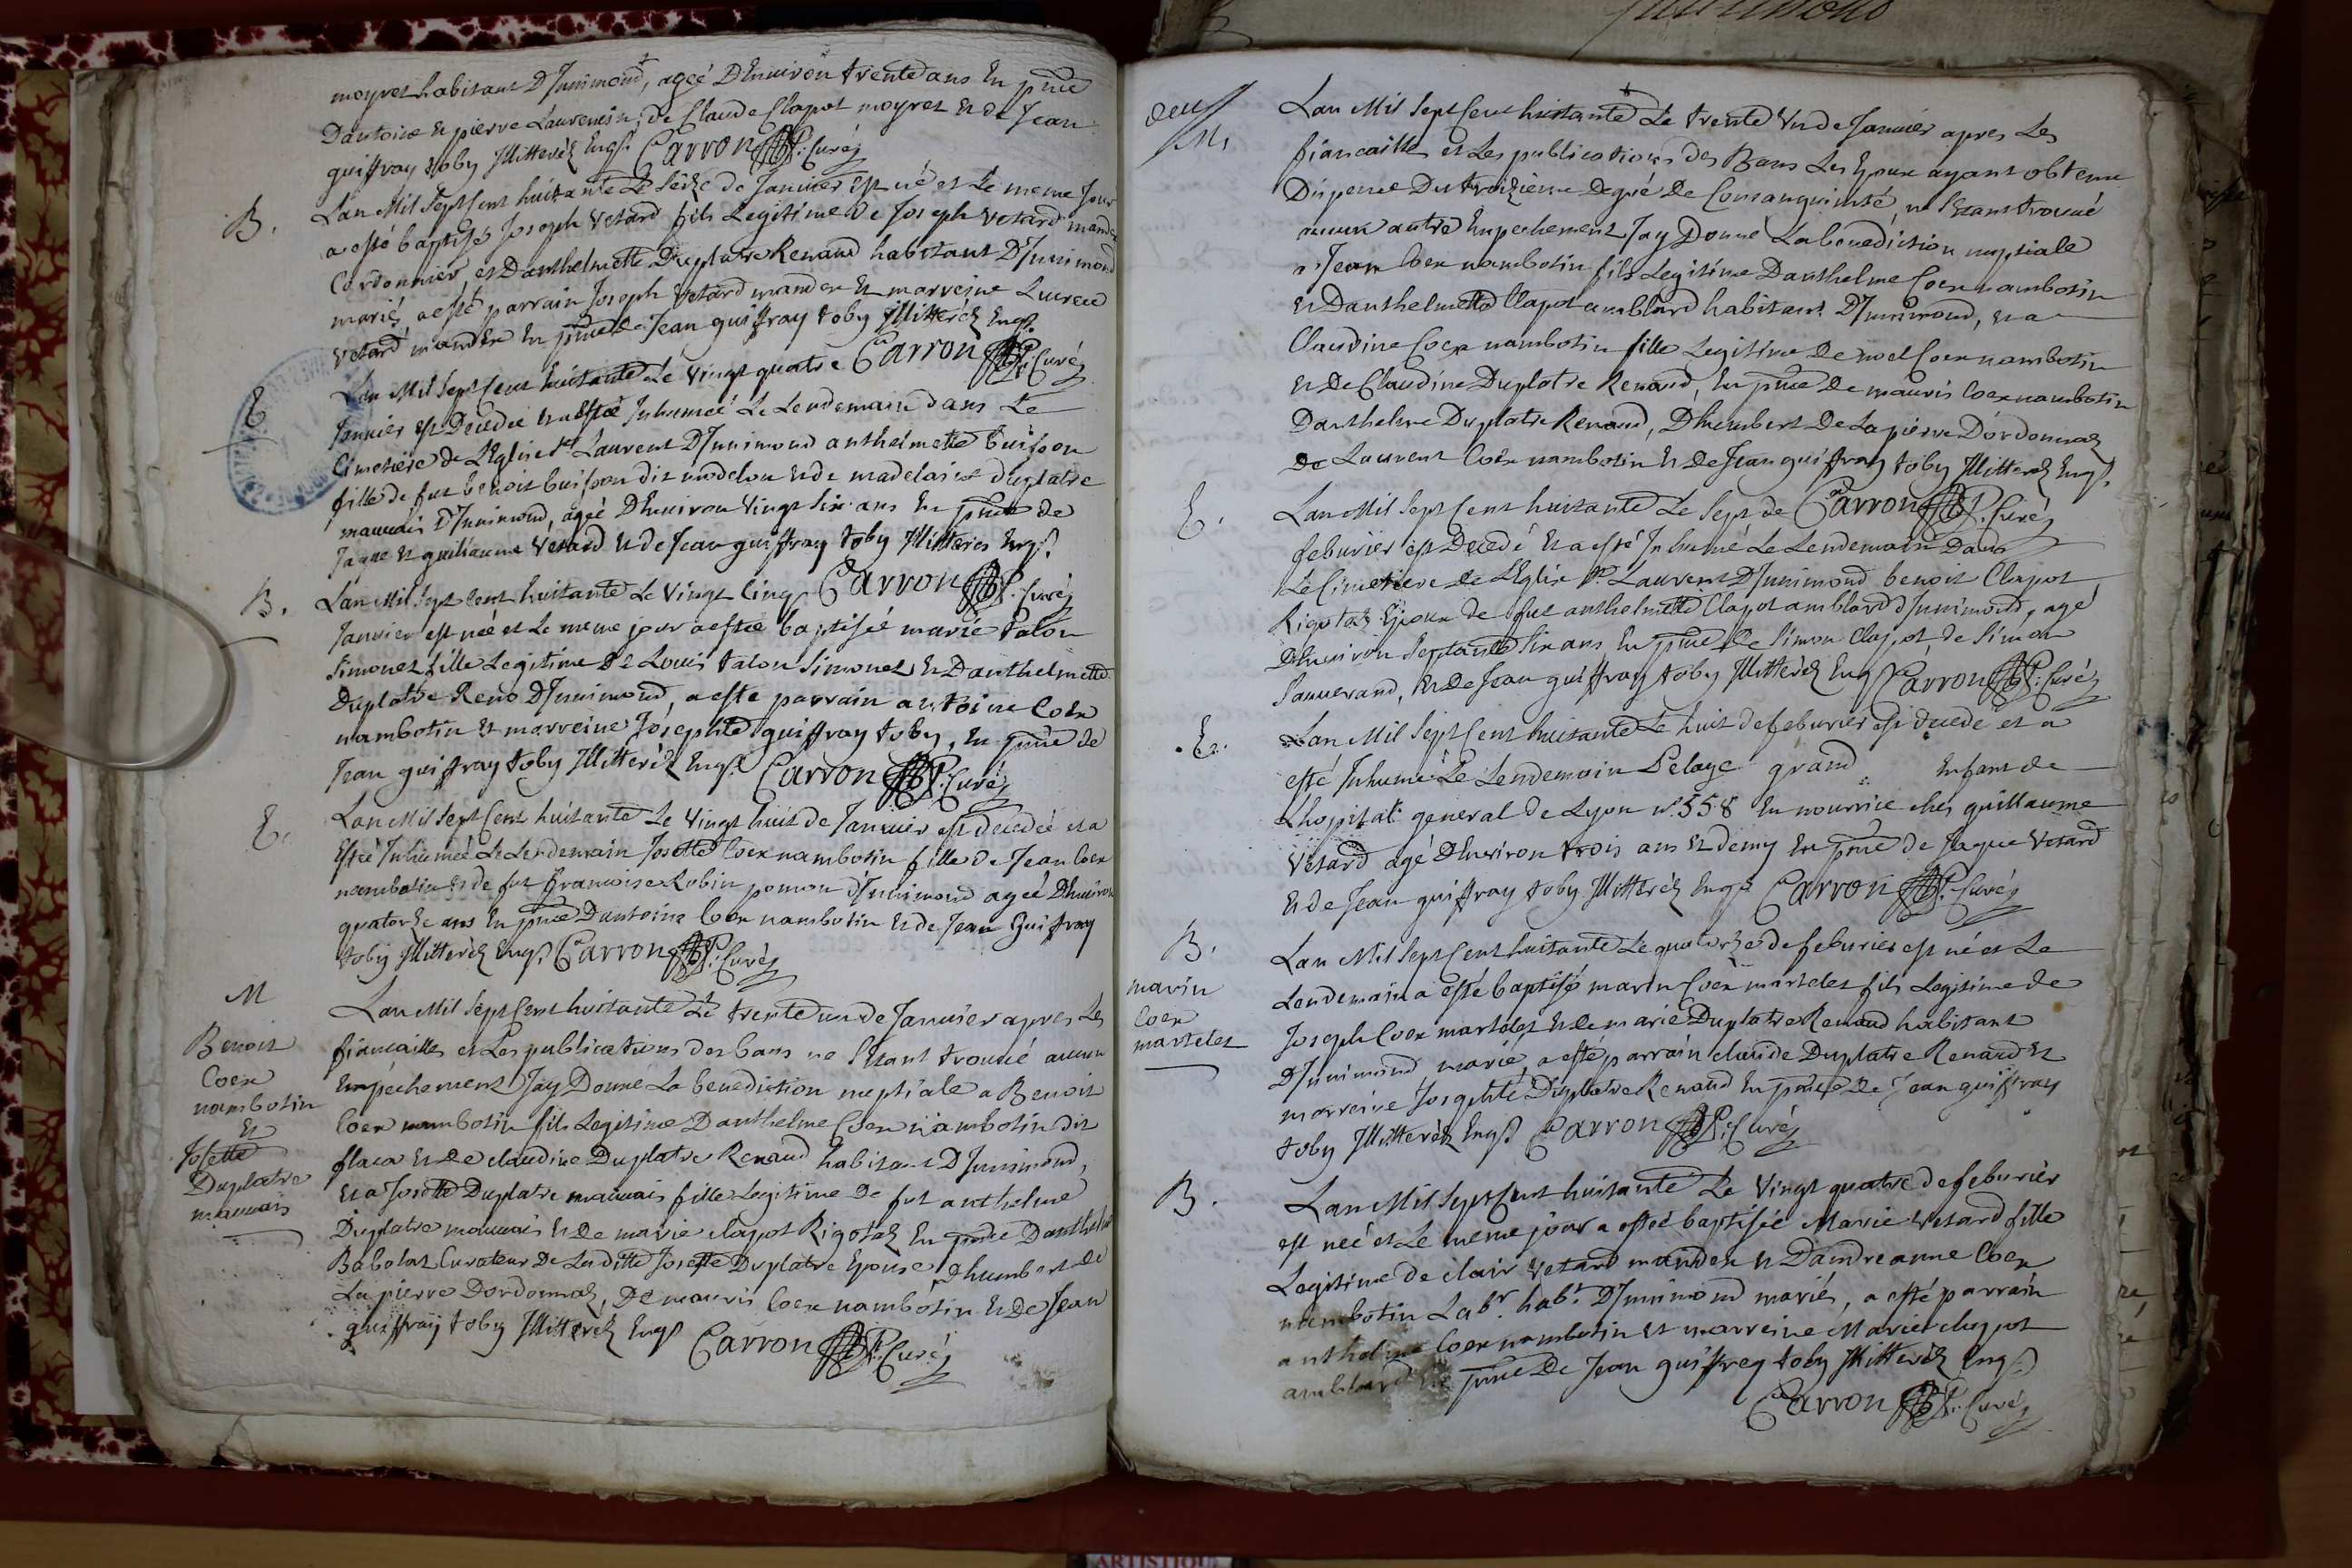 moyret habitant D'Innimond, ageé D'Environ trente ans En pnce
D'antoine Et pierre Laurencin, de Claude Clapot moyret Et de Jean
guiffray toby Illitteréz Enqs. Carron P: Curéz
B.
Lan Mil Sept Cent huitante Le Séize de Janvier Est né et Le meme Jour
a esté baptisé Joseph Vetard fils Legitime de Joseph Vetard mander
Cordonnier, et D'anthelmette Duplatre Renaud habitant D'Innimond
mariés, a esté parrain Joseph Vetard mander Et marreine Lucrece
Vetard mander En pnce de Jean guiffray toby Illitteréz Enqs.
Carron P: Curéz
E
Lan Mil Sept Cent huitante Le Vingt quatre
Janvier Est Decedée Et a Esteé Inhumeé Le Lendemain dans Le
Cimetiere de L'Eglise St Laurent D'Innimond anthelmette buisson
fille de fut benoit buisson dit modelon Et de madelaine duplatre
mauvais D'Innimond, ageé D'Environ Vingt Six ans En pnce de
Jaque Et guillaume Vetard Et de Jean guiffray toby Illitterés Enqs.
Carron P. Curéz
B.
Lan Mil Sept Cent huitante Le Vingt Cinq
Janvier est neé et Le meme jour a esteé baptiseé marie talon
Simonet fille Legitime De Louis talon Simonet Et D'anthelmette
Duplatre Reno D'Innimond, a este parrain antoine Coex
nambotin Et marreine Josephte guiffray toby, En pnce de
Jean guiffray toby Illitteréz Enqs. Carron P: Curéz
E.
Lan Mil Sept Cent huitante Le Vingt huit de Janvier est decedeé et a
Esteé Inhumeé Le Lendemain Josette Coex nambotin fille de Jean Coex
nambotin Et de fut francoise Robin pomon d'Innimond ageé D'Environ
quatorze ans En pnce D'antoine Coex nambotin Et de Jean Guiffray
toby Illitteréz Enqs. Carron P: Curéz
M
Benoit
Coex
nambotin
Et
Josette
Duplatre
mauvais
Lan Mil Sept Cent huitante Le trente un de Janvier apres Les
fiancailles et Les publications des bans ne S'Etant trouvé aucun
Empechement Jay Donné La benediction nuptiale a Benoit
Coex nambotin fils Legitime D'anthelme Coex nambotin dit
flaca Et de claudine Duplatre Renaud habitant D'Innimond,
Et a Josette Duplatre mauvais fille Legitime de fut anthelme
Duplatre mauvais Et De marie clapot Rigotaz En pnce D'anthelme
Babolat Curateur De Laditte Josette Duplatre Epouse, D'humbert de
La pierre Dordonnaz, De mauris Coex nambotin Et De Jean
guiffray toby Illitteréz Enqs Carron P: Curéz
M.
Lan Mil Sept Cent huitante Le trente Un de Janvier apres Les
fiancailles et Les publications des Bans Les Epoux ayant obtenu
Dispense Du troizieme Degré de Consanguinité, ne S'Etant trouvé
aucun autre Empechement Jay Donné La benediction nuptiale
a Jean Coex nambotin fils Legitime D'anthelme Coex nambotin
Et D'anthelmette Clapot amblard habitant D'Innimond, Et a
Claudine Coex nambotin fille Legitime de noel Coex nambotin
Et De Claudine Duplatre Renaud, En pnce de mauris Coex nambotin
D'anthelme Duplatre Renaud, D'humbert De La pierre D'ordonnaz
De Laurent Coex nambotin Et De Jean guiffray toby Illitteréz Enqs.
Carron P. Curéz
E.
Lan Mil Sept Cent huitante Le Sept de
feburier est Decedé Et a esté Inhumé Le Lendemain Dans
Le Cimetiere de L'Eglise St Laurent D'Innimond benoit Clapot
Rigotaz Epoux de fut anthelmette Clapot amblard d'Innimond, agé
D'Environ Septante Six ans En pnce De Simon Clapot de Simon
Januerand, Et de Jean guiffray toby Illitteréz Enqs Carron P: Curéz
E.
Lan Mil Sept Cent huitante Le huit de feburier est decedé et a
esté Inhumé Le Lendemain Pelage grand Enfant de
L'hopital general de Lyon n° 558 En nourrice ches guillaume
Vetard agé D'Environ trois ans Et demy En pnce de Jaque Vetard
Et de Jean guiffray toby Illitteréz Enqs Carron P. Curéz
B.
marin
Coex
martelet
Lan Mil Sept Cent huitante Le quatorze de feburier est né et Le
Lendemain a esté baptisé marin Coex martelet fils Legitime de
Joseph Coex martelet Et de marie Duplatre Renaud habitant
D'Innimond mariés, a esté parrain claude Duplatre Renaud Et
marreine Josephte Duplatre Renaud En pnce De Jean guiffray
toby Illitteréz Enqs Carron P: Curéz
B.
Lan Mil Sept Cent huitante Le Vingt quatre de feburier
est neé et Le meme jour a esteé baptiseé Marie Vetard fille
Legitime de clair Vetard mander Et D'andreanne Coex
nambotin Labr. habt. D'Innimond mariés, a esté parrain
anthelme Coex nambotin Et marreine Marie clapot
amblard En pnce De Jean guiffray toby Illitteréz Enqs
Carron P: Curéz
ARTISTIQUE